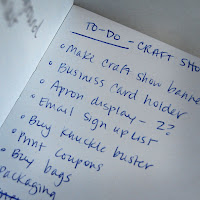 TO-DO - CRAFT SHO
• Make craft show banne
• Business card holder
• Apron display - 2?
• Email sign up list
• Buy knuckle buster
• Print coupons
• Buy bags
packaging